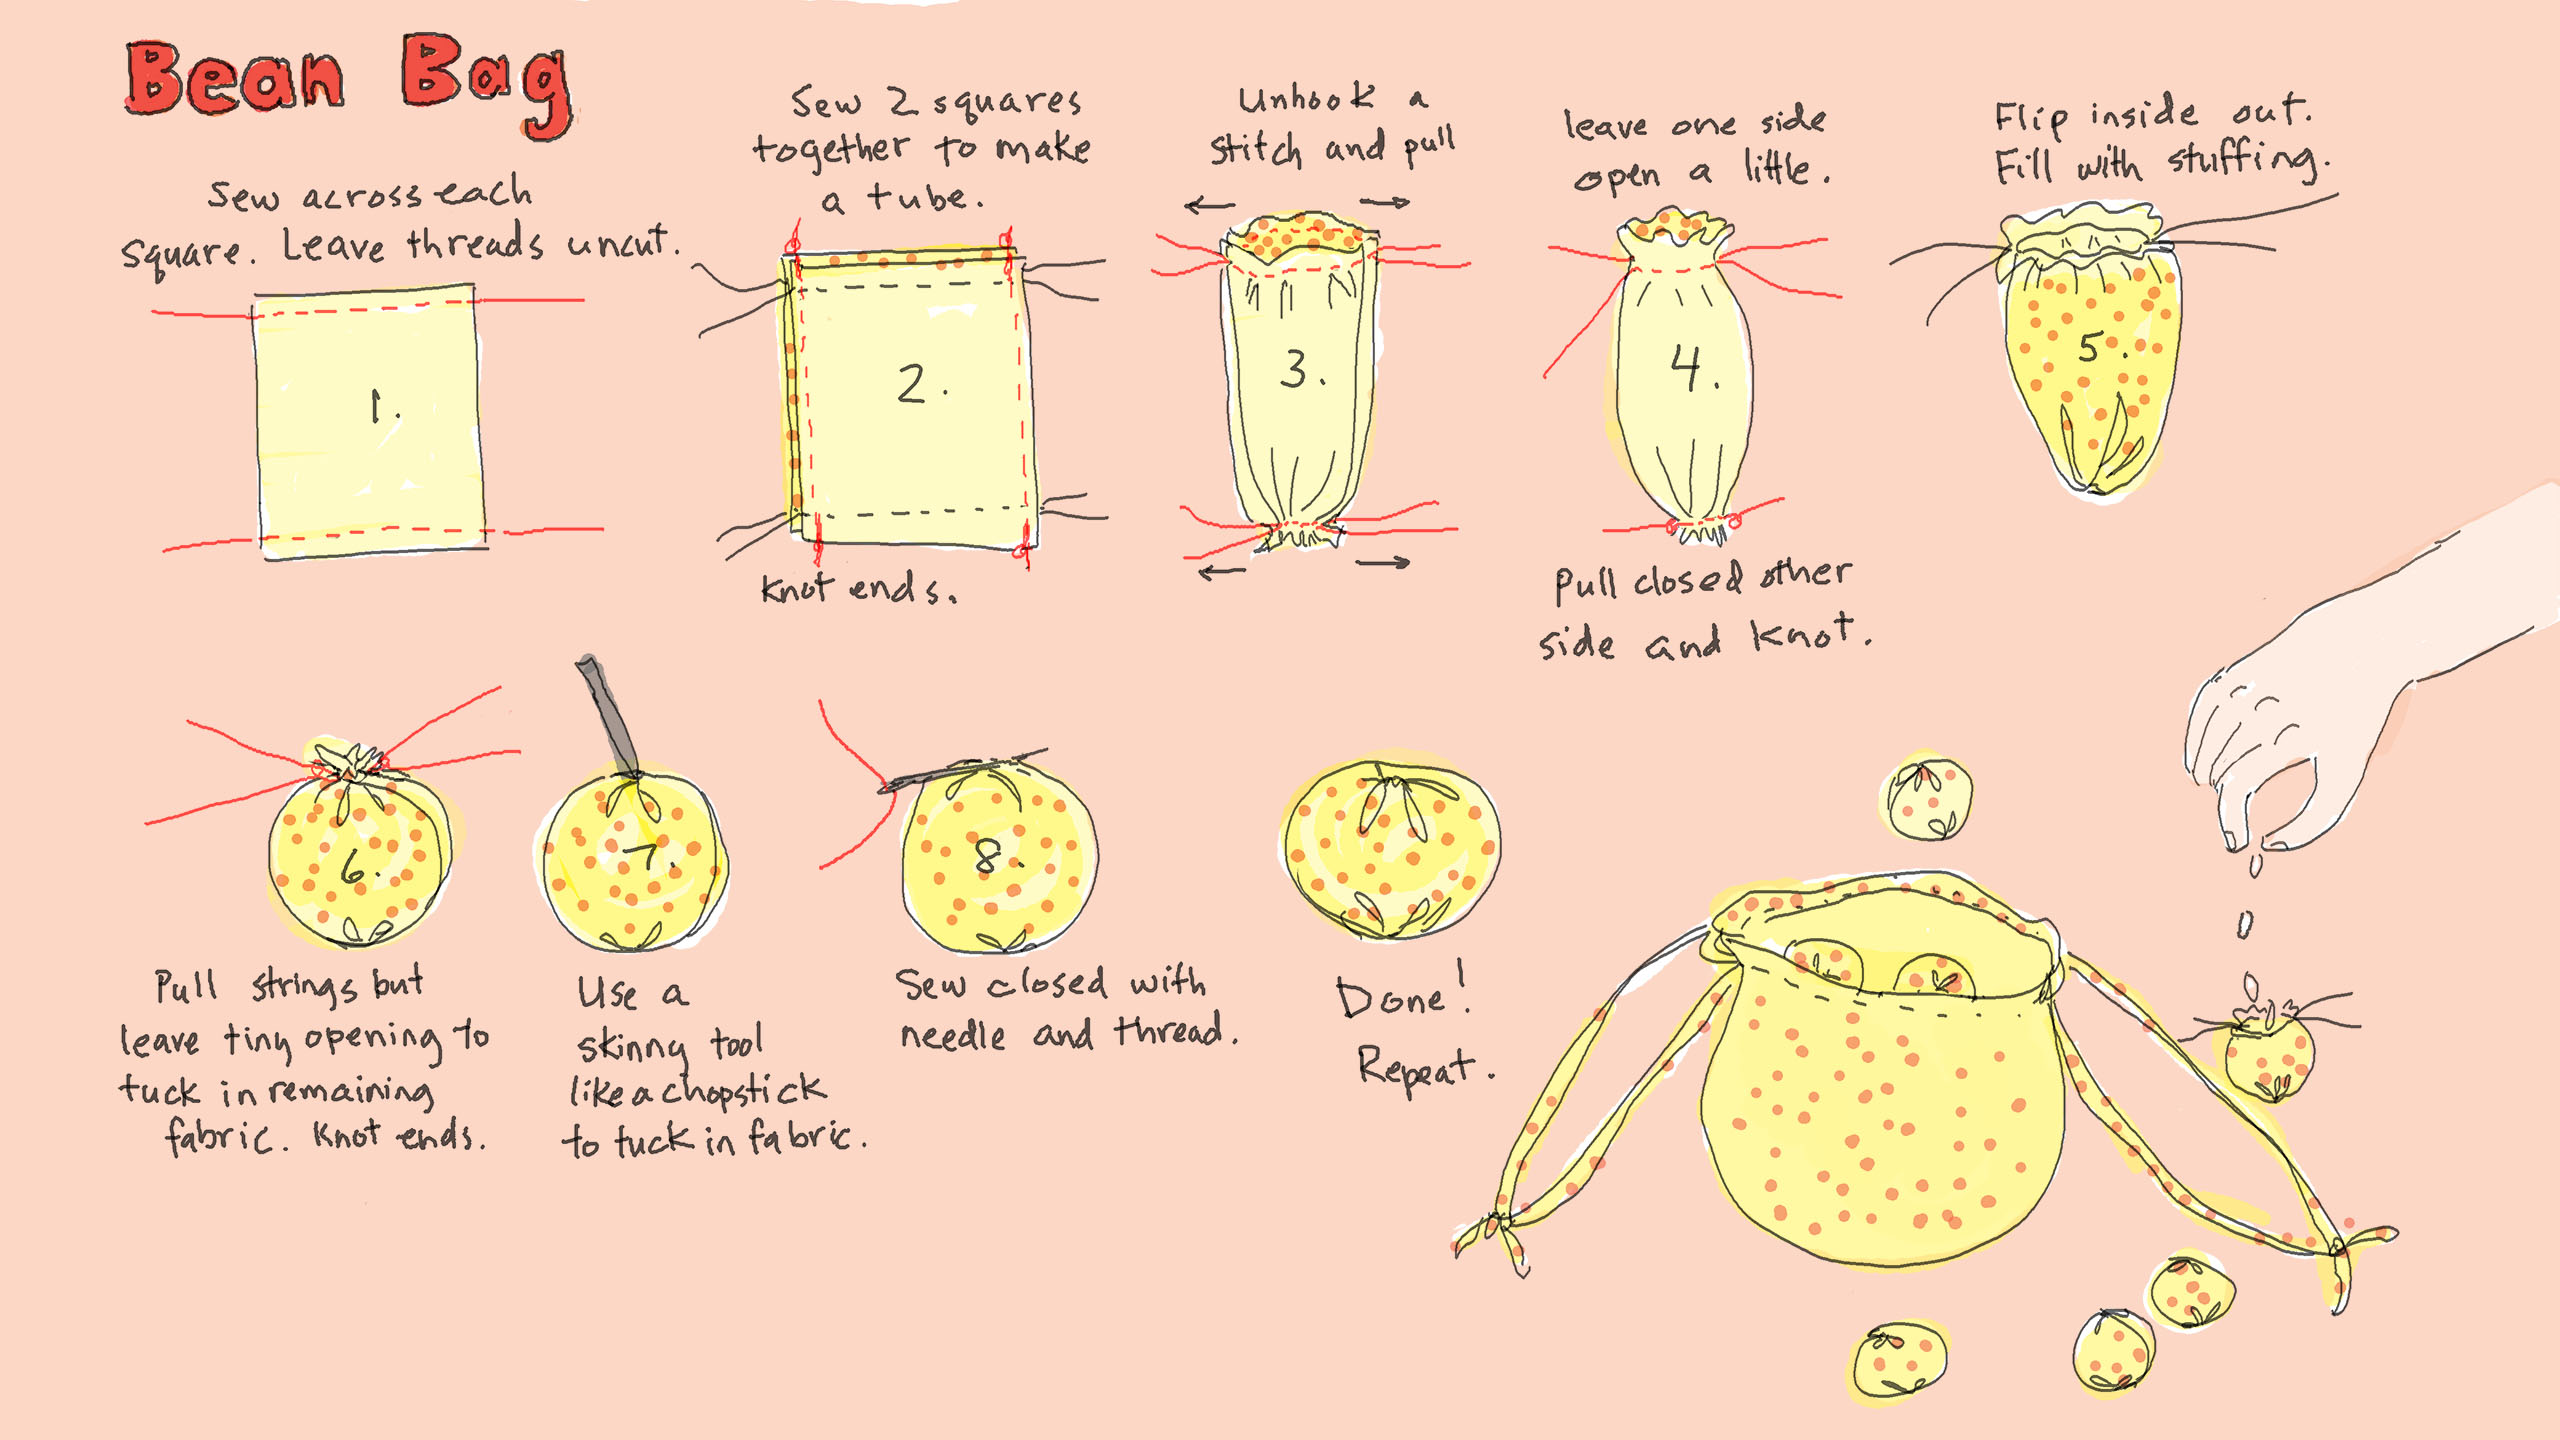 Bean Bag
Sew across each
square. Leave threads uncut.
1.
Sew 2 squares
together to make
a tube.
2.
Knot ends.
Unhook a
stitch and pull
3.
leave one side
open a little.
4.
Pull closed other
side and knot.
Flip inside out.
Fill with stuffing.
5.
6.
Pull strings but
leave tiny opening to
tuck in remaining
fabric. Knot ends.
7.
Use a
skinny tool
like a chopstick
to tuck in fabric.
8.
Sew closed with
needle and thread.
Done!
Repeat.